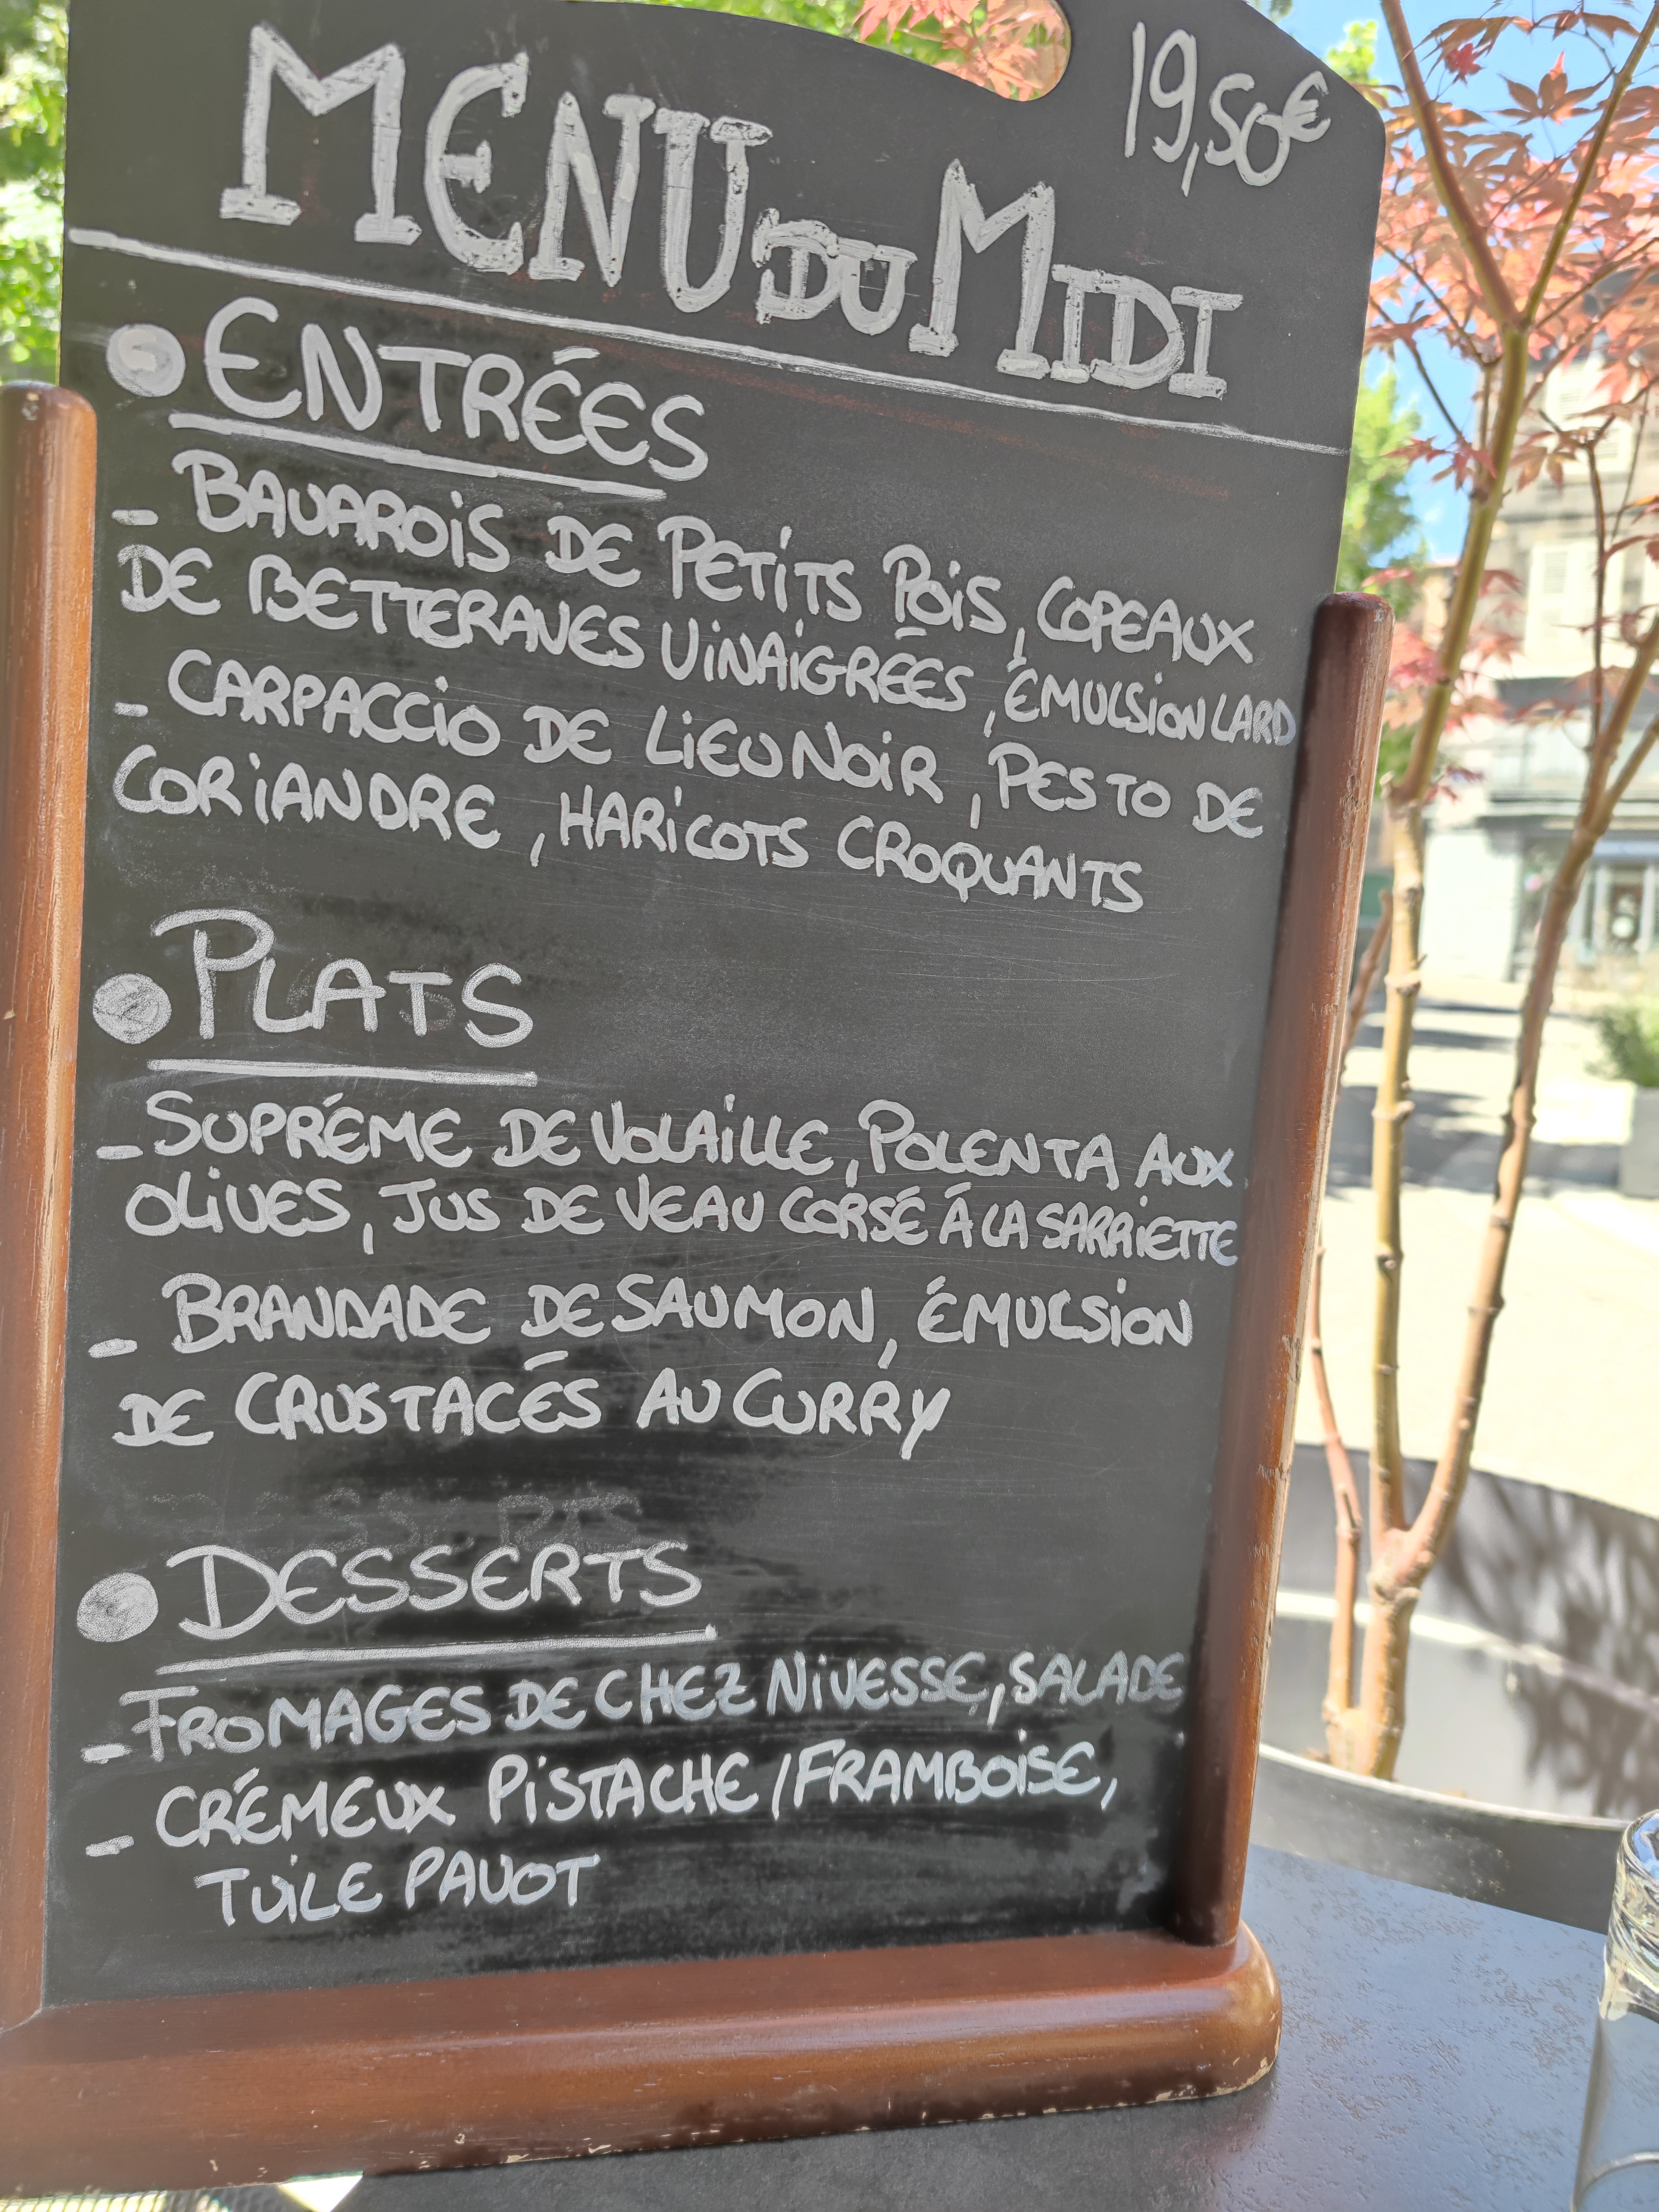 19,50€
MENU DU MIDI
ENTRÉES
- BAVAROIS DE PETITS POIS, COPEAUX
DE BETTERAVES VINAIGRÉES, ÉMULSION LARD
- CARPACCIO DE LIEU NOIR, PESTO DE
CORIANDRE, HARICOTS CROQUANTS
PLATS
- SUPRÉME DE VOLAILLE, POLENTA AUX
OLIVES, JUS DE VEAU CORSÉ À LA SARRIETTE
- BRANDADE DE SAUMON, ÉMULSION
DE CRUSTACÉS AU CURRY
DESSERTS
DESSERTS
- FROMAGES DE CHEZ NIVESSE, SALADE
- CRÉMEUX PISTACHE/FRAMBOISE,
TUILE PAVOT